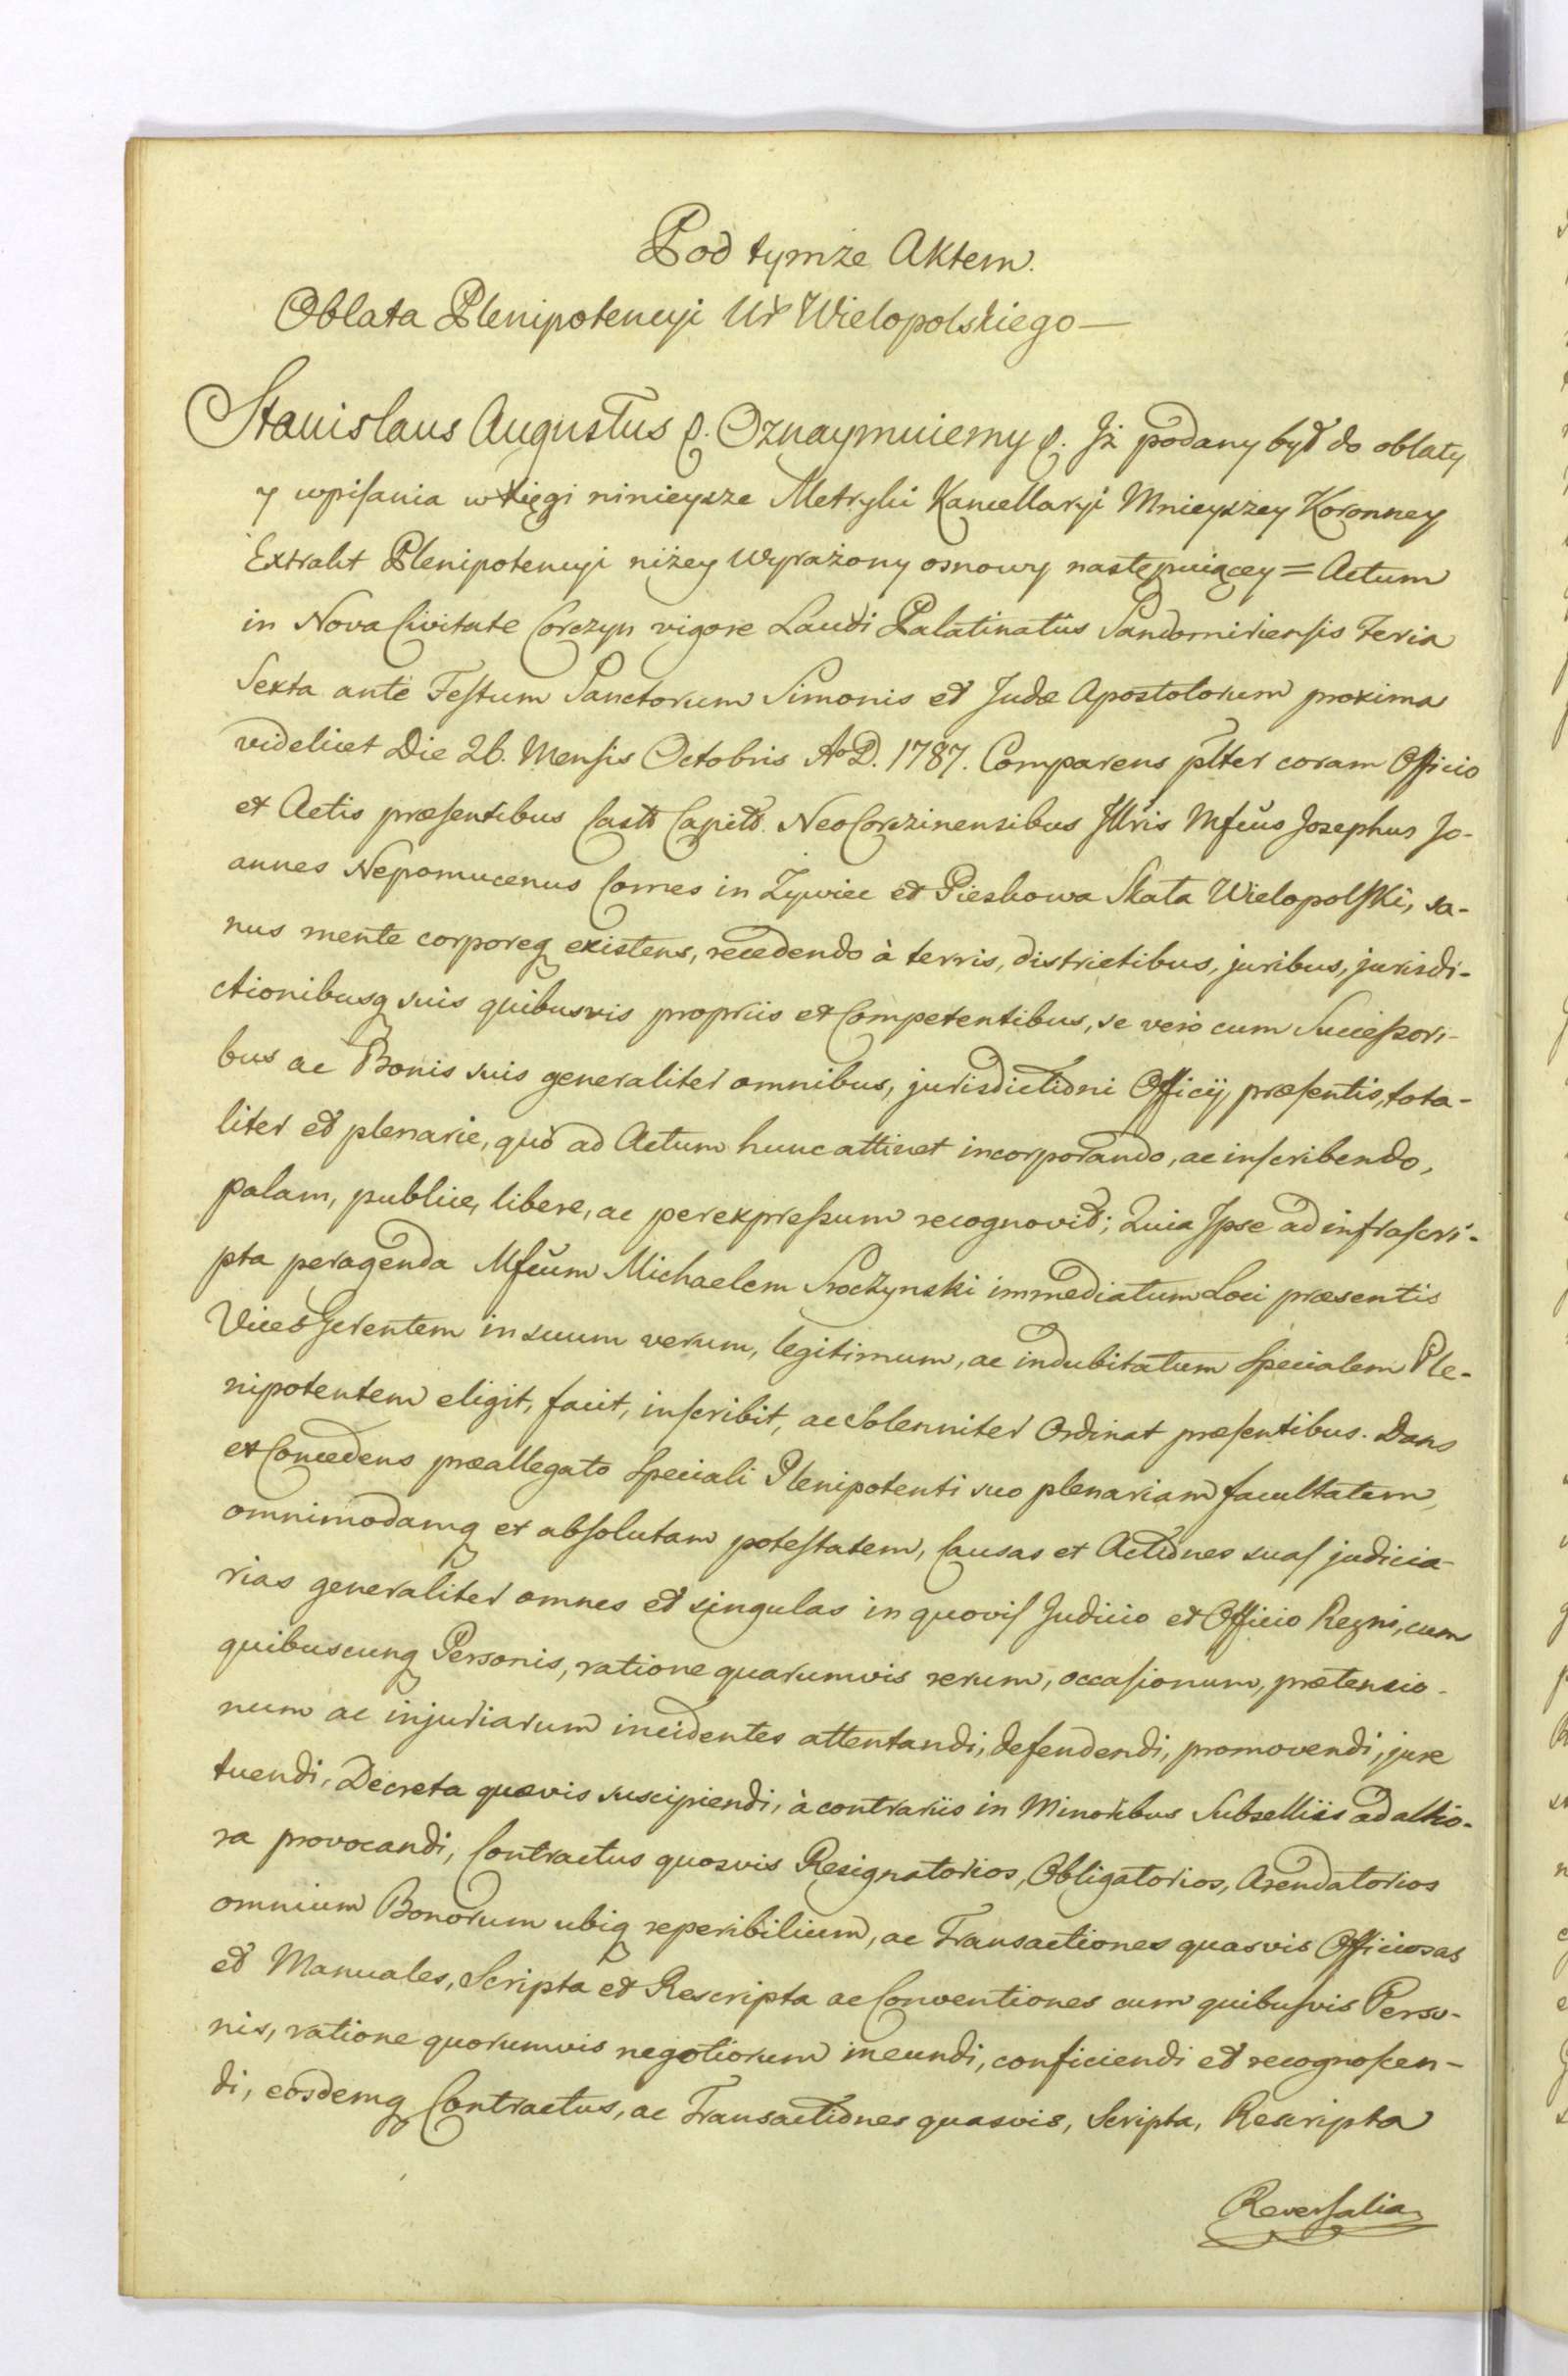 Pod tymże Aktem.
Oblata Plenipotencyi Ur Wielopolskiego —
Stanislaus Augustus &. Oznaymuiemy &. Jż podany był do oblaty
y wpiſania w Xięgi ninieysze Metryki Kancellaryi Mnieyszey Koronney
Extrakt Plenipotencyi niżey wyrażony osnowy następuiącey = Actum
in Nova Civitate Corczyn vigore Laudi Palatinatûs Sandomiriensis Feria
Sexta ante Feſtum Sanctorum Simonis et Judæ Apostolorum proxima
videlicet Die 26. Menſis Octobris AoD. 1787. Comparens pſlter coram Officio
et Actis præſentibus Castr Capit. NeoCorczinensibus Jllris Mfcus Josephus Jo-
annes Nepomucenus Comes in Zywiec et Pieskowa Skała Wielopolſki, sa-
nus mente corporeq existens, recedendo à terris, districtibus, juribus, jurisdi-
ctionibusq suis quibusvis propriis et Competentibus, se verò cum Succeſsori-
bus ac Bonis suis generaliter omnibus, jurisdictioni Officij, præſentis, tota-
liter et plenarie, quò ad Actum hunc attinet incorporando, ac inſcribendo,
palam, publice, libere, ac per expreſsum recognovit; Quia Jpse ad infraſcri-
pta peragenda Mfcum Michaelem Sroczynski immediatum Loci præsentis
Vices Gerentem in suum verum, legitimum, ac indubitatum Specialem Ple-
nipotentem eligit, facit, inſcribit, ac Solenniter Ordinat præſentibus. Dans
et Concedens præallegato Speciali Plenipotenti suo plenariam facultatem,
omnimodamq et abſolutam poteſtatem, Causas et Actiones suaſ judicia-
rias generaliter omnes et singulas in quoviſ Judicio et Officio Regni, cum
quibuscunq Personis, ratione quarumvis rerum, occaſionum, prætensio-
num ac injuriarum incidentes attentandi, defendendi, promovendi, jure
tuendi, Decreta quævis suscipiendi, à contrariis in Minoribus Subselliis ad altio-
ra provocandi, Contractus quosvis Resignatorios, Obligatorios, Arendatorios
omnium Bonorum ubiq reperibilium, ac Transactiones quasvis Officiosas
et Manuales, Scripta et Rescripta ac Conventiones cum quibuſvis Perso-
nis, ratione quorumvis negotiorum ineundi, conficiendi et recognoſcen-
di, eosdemq Contractus, ac Transactiones quasvis, Scripta, Rescripta
Reverſalia